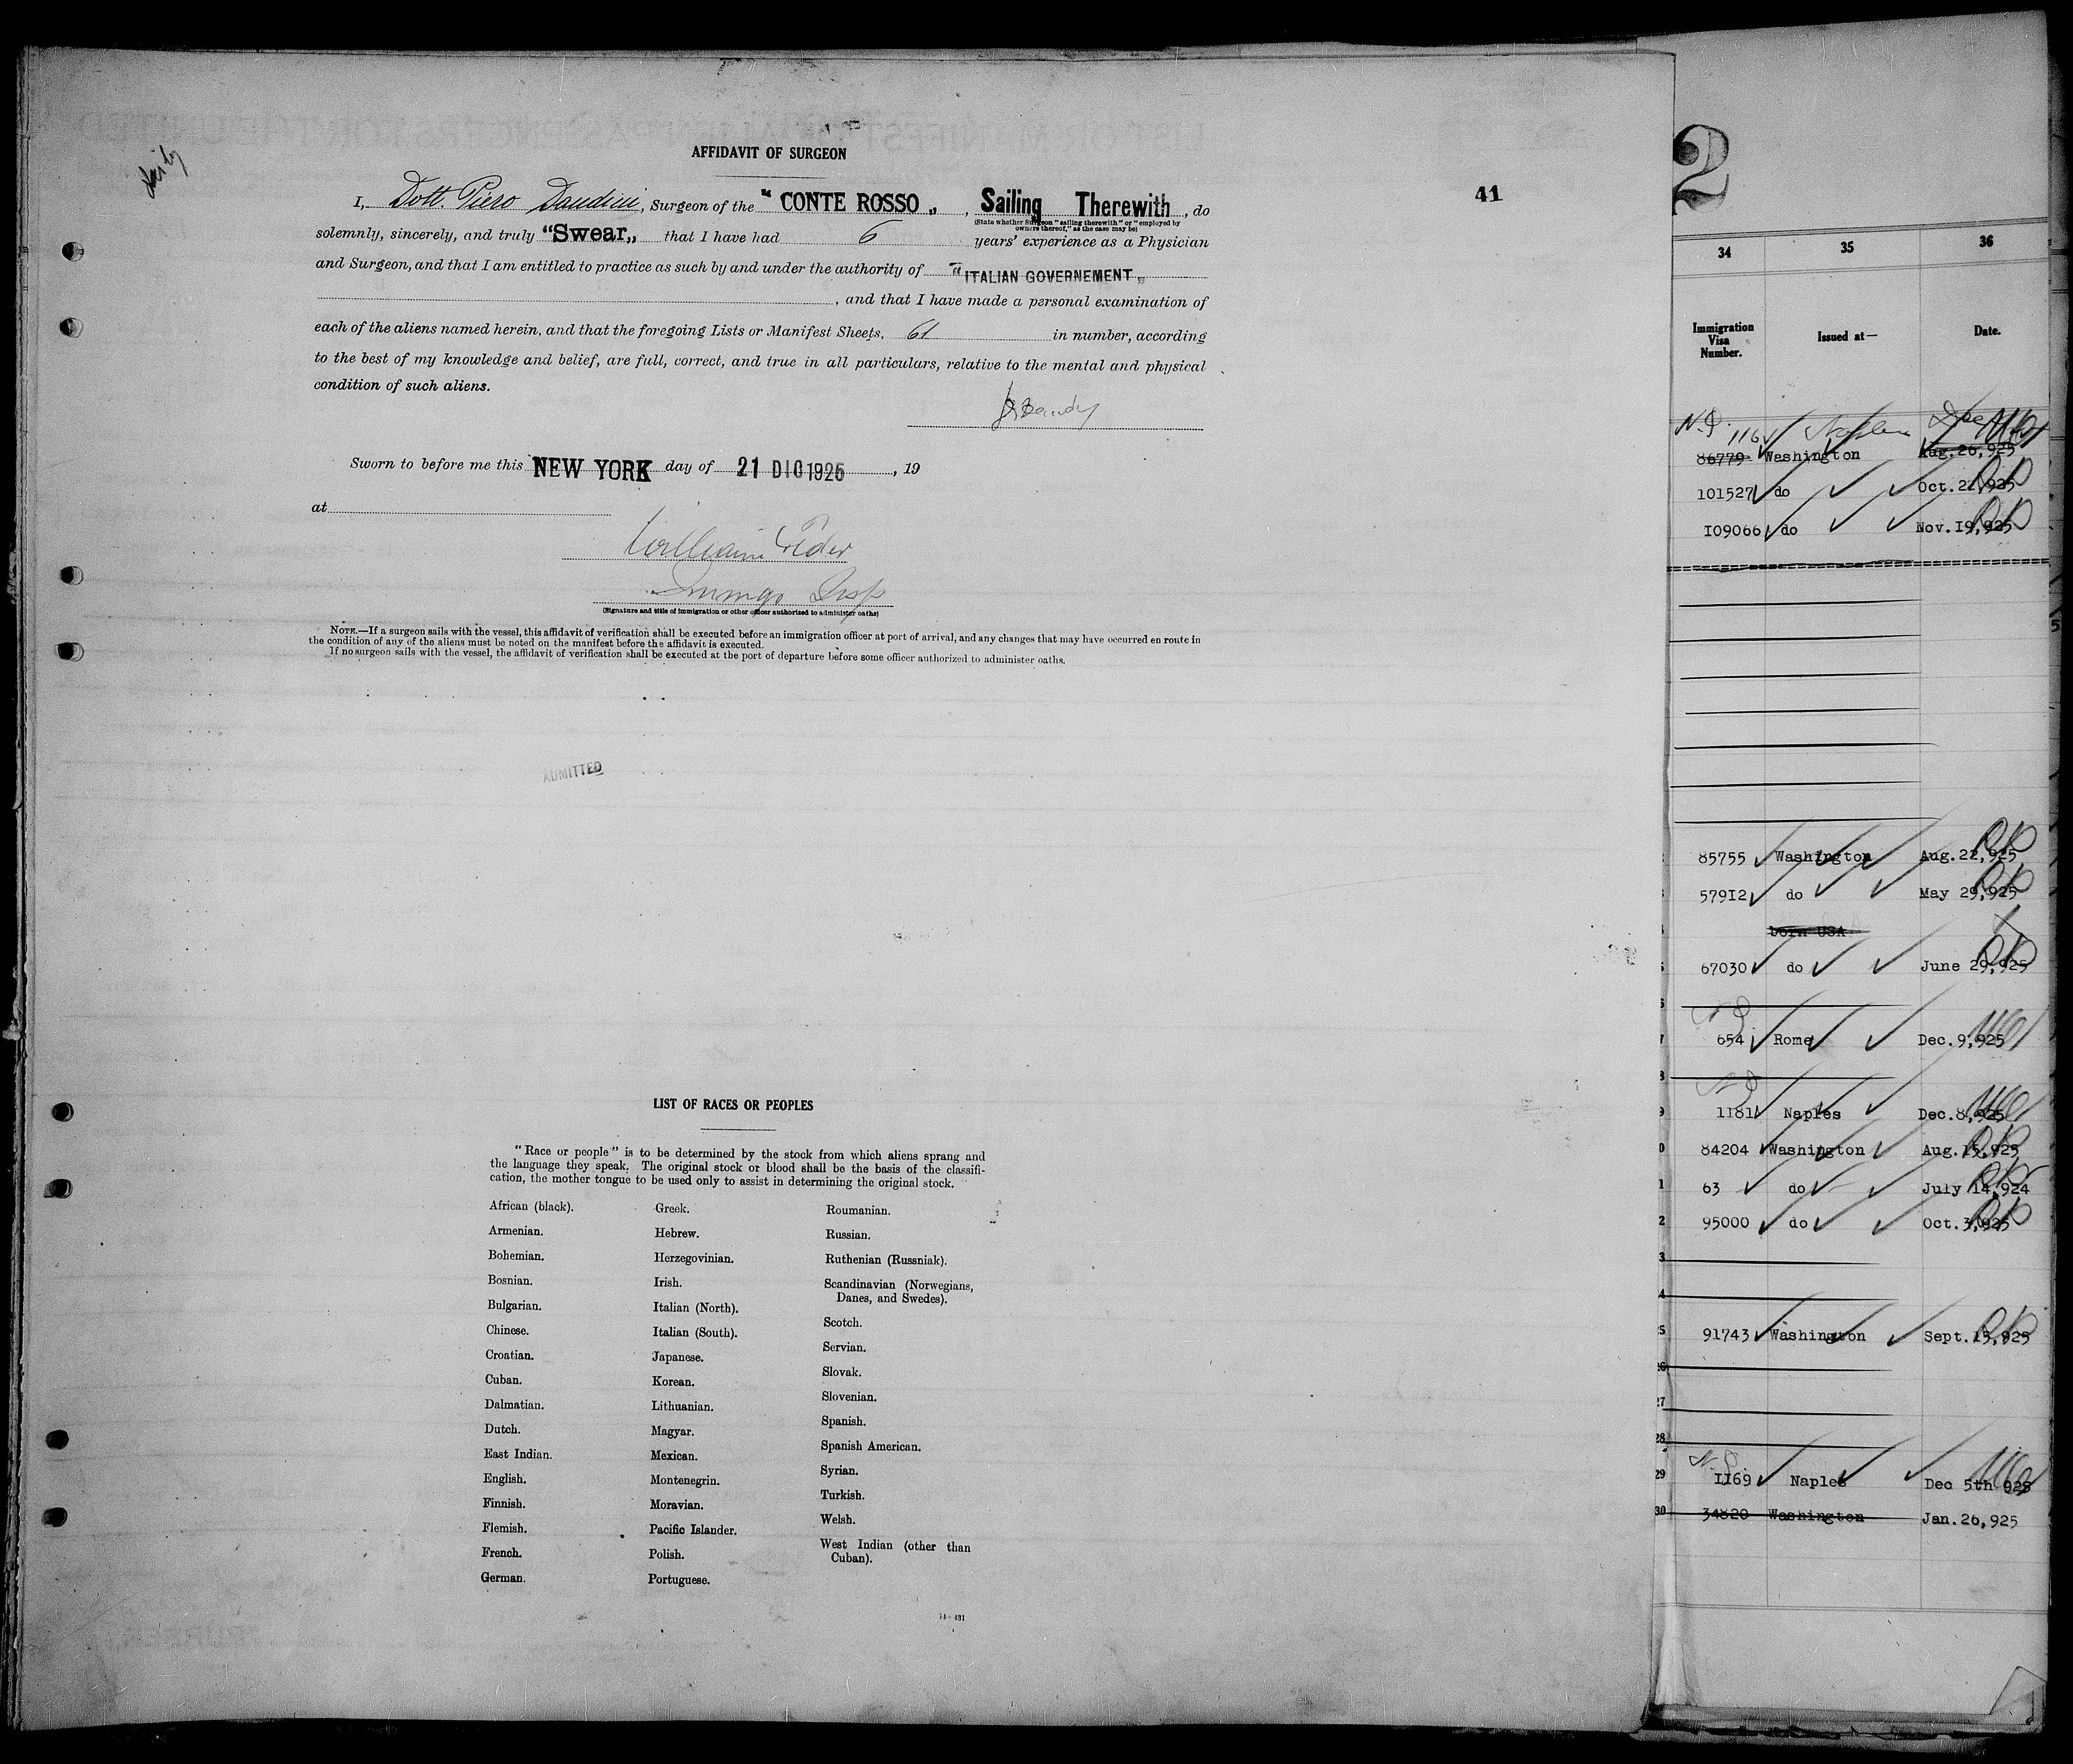 AFFIDAVIT OF SURGEON
41
I, Dott. Piero Dandini, Surgeon of the "CONTE ROSSO„, Sailing Therewith, do
(State whether Surgeon "sailing therewith" or "employed by
owners thereof," as the case may be)
solemnly, sincerely, and truly "Swear„ that I have had 6 years' experience as a Physician
and Surgeon, and that I am entitled to practice as such by and under the authority of "ITALIAN GOVERNEMENT„
, and that I have made a personal examination of
each of the aliens named herein, and that the foregoing Lists or Manifest Sheets, 61 in number, according
to the best of my knowledge and belief, are full, correct, and true in all particulars, relative to the mental and physical
condition of such aliens.
Sworn to before me this NEW YORK day of 21 DIC 1925, 19
at
William
Immigr Insp
(Signature and title of immigration or other officer authorized to administer oaths)
NOTE.—If a surgeon sails with the vessel, this affidavit of verification shall be executed before an immigration officer at port of arrival, and any changes that may have occurred en route in
the condition of any of the aliens must be noted on the manifest before the affidavit is executed.
If no surgeon sails with the vessel, the affidavit of verification shall be executed at the port of departure before some officer authorized to administer oaths.
ADMITTED
LIST OF RACES OR PEOPLES
"Race or people" is to be determined by the stock from which aliens sprang and
the language they speak. The original stock or blood shall be the basis of the classifi-
cation, the mother tongue to be used only to assist in determining the original stock.
African (black).
Armenian.
Bohemian.
Bosnian.
Bulgarian.
Chinese.
Croatian.
Cuban.
Dalmatian.
Dutch.
East Indian.
English.
Finnish.
Flemish.
French.
German.
Greek.
Hebrew.
Herzegovinian.
Irish.
Italian (North).
Italian (South).
Japanese.
Korean.
Lithuanian.
Magyar.
Mexican.
Montenegrin.
Moravian.
Pacific Islander.
Polish.
Portuguese.
Roumanian.
Russian.
Ruthenian (Russniak).
Scandinavian (Norwegians,
Danes, and Swedes).
Scotch.
Servian.
Slovak.
Slovenian.
Spanish.
Spanish American.
Syrian.
Turkish.
Welsh.
West Indian (other than
Cuban).
14—481
2
34 35 36
Immigration
Visa
Number.
Issued at—
Date.
N.Q. 1161 Naples Dec
86779 Washington Aug.26,925
101527 do Oct.22,925
109066 do Nov.19,925
85755 Washington Aug.22,925
57912 do May 29,925
born USA
67030 do June 29,925
654 Rome Dec.9,925
1181 Naples Dec.8,925
84204 Washington Aug.15,925
63 do July 14,924
95000 do Oct.3,925
91743 Washington Sept.15,925
26
27
28
29 1169 Naples Dec 5th 925
30 34820 Washington Jan.26,925